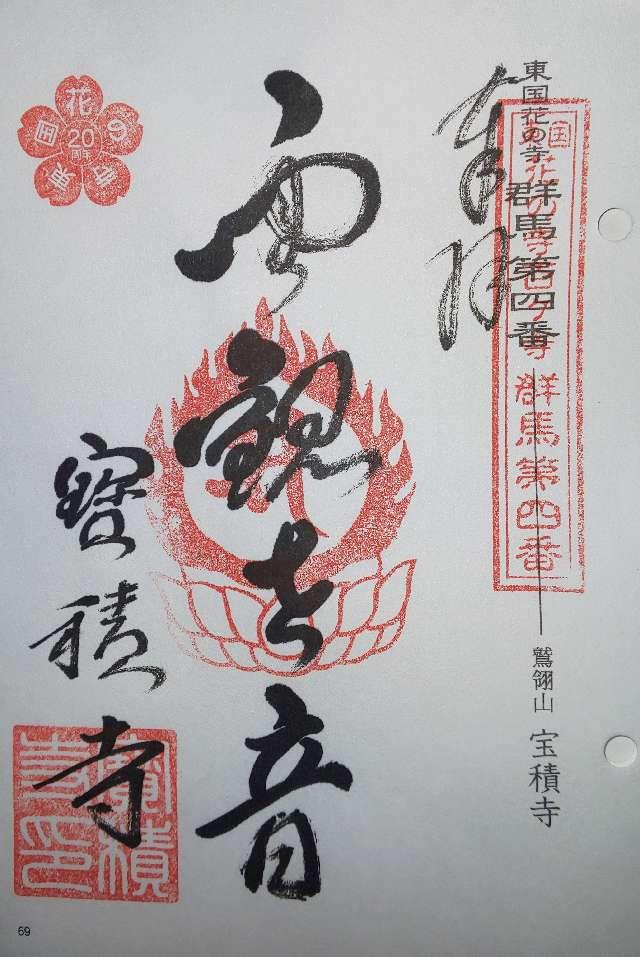 東国花の寺 群馬第四番 鷲翎山 宝積寺
東国花の寺百ヶ寺 群馬第四番
奉拝
観世音
寶積寺
寶積寺印
東国花の寺
20周年
69